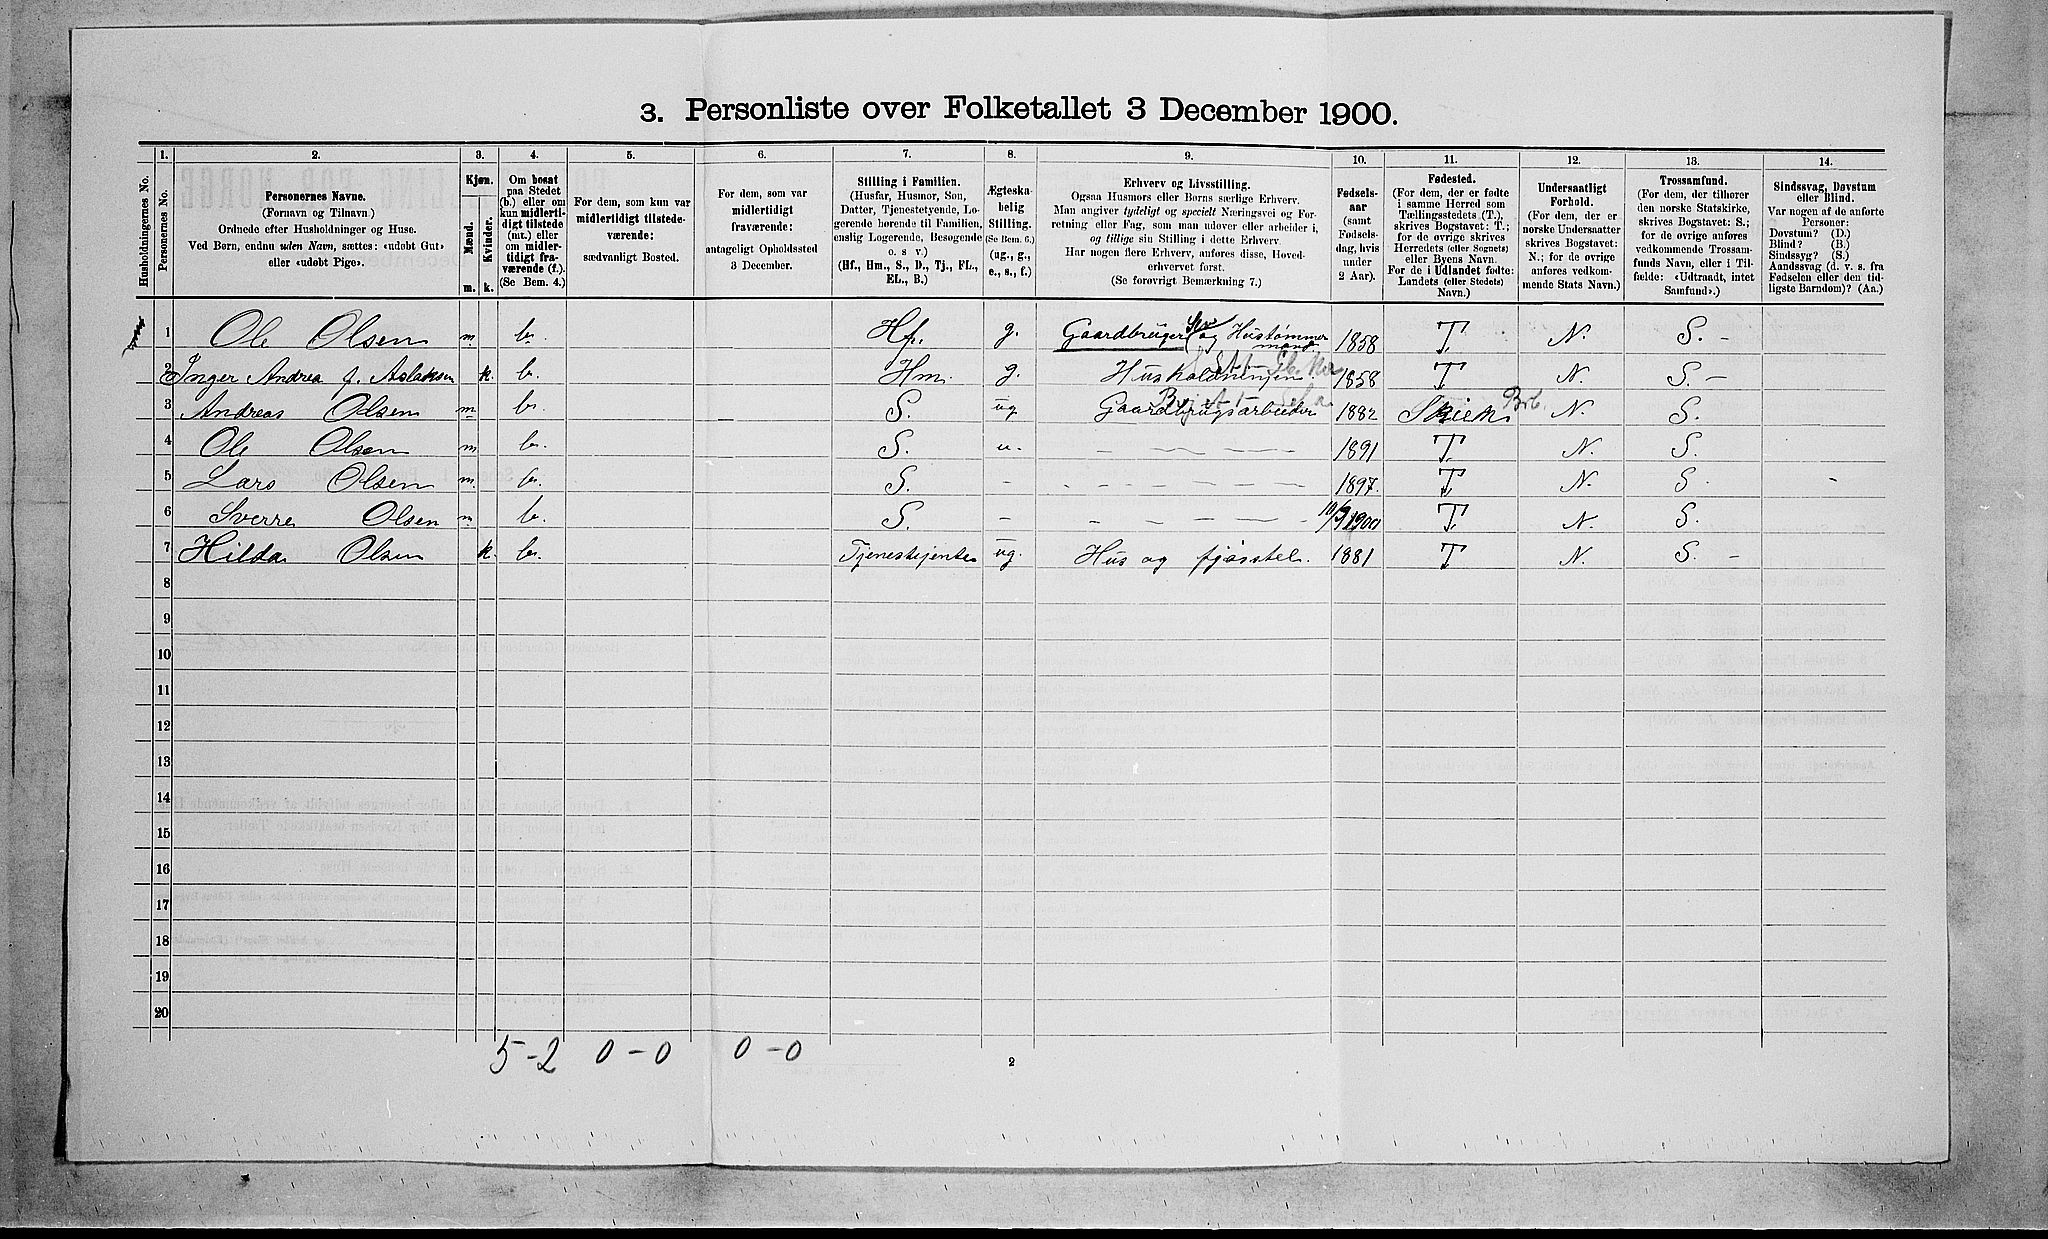 3. Personliste over Folketallet 3 December 1900.
Husholdningernes No.
1. Personernes No.
2. Personernes Navne.
(Fornavn og Tilnavn)
Ordnede efter Husholdninger og Huse.
Ved Børn, endnu uden Navn, sættes: «udøbt Gut»
eller «udøbt Pige».
3. Kjøn.
Mænd. m.
Kvinder. k.
4. Om bosat
paa Stedet
(b.) eller om
kun midlerti-
digt tilstede
(mt.) eller
om midler-
tidigt fra-
værende (f.).
(Se Bem. 4.)
5. For dem, som kun var
midlertidigt tilstede-
værende:
sædvanligt Bosted.
6. For dem, som var
midlertidigt
fraværende:
antageligt Opholdssted
3 December.
7. Stilling i Familien.
(Husfar, Husmor, Søn,
Datter, Tjenestetyende, Lo-
gerende hørende til Familien,
enslig Logerende, Besøgende
o. s. v.)
(Hf., Hm., S., D., Tj., FL.,
EL., B.)
8. Ægteska-
belig
Stilling.
(Se Bem. 6.)
(ug., g.,
e., s., f.)
9. Erhverv og Livsstilling.
Ogsaa Husmors eller Børns særlige Erhverv.
Man angiver tydeligt og specielt Næringsvei og For-
retning eller Fag, som man udøver eller arbeider i,
og tillige sin Stilling i dette Erhverv.
Har nogen flere Erhverv, anføres disse, Hoved-
erhvervet først.
(Se forøvrigt Bemærkning 7.)
10. Fødsels-
aar
(samt
Fødsels-
dag, hvis
under
2 Aar).
11. Fødested.
(For dem, der er fødte
i samme Herred som
Tællingsstedets (T.),
skrives Bogstavet: T.;
for de øvrige skrives
Herredets (eller Sognets)
eller Byens Navn.
For de i Udlandet fødte:
Landets (eller Stedets)
Navn.)
12. Undersaatligt
Forhold.
(For dem, der er
norske Undersaatter
skrives Bogstavet:
N.; for de øvrige
anføres vedkom-
mende Stats Navn.)
13. Trossamfund.
(For dem, der tilhører
den norske Statskirke,
skrives Bogstavet: S.;
for de øvrige anføres
vedkommende Trossam-
funds Navn, eller i Til-
fælde: «Udtraadt, intet
Samfund».)
14. Sindssvag, Døvstum
eller Blind.
Var nogen af de anførte
Personer:
Døvstum? (D.)
Blind? (B.)
Sindssyg? (S.)
Aandssvag (d. v. s. fra
Fødselen eller den tid-
ligste Barndom)? (Aa.)
1 Ole Olsen m. b. Hf. g. Gaardbruger og Hustømmer mand. 1858 T. N. S. -
2 Inger Andrea f. Aslaksen k. b. Hm. g. Husholdningen. 1858 T N. S. -
3 Andreas Olsen m b. S. ug Gaardbrugsarbeider 1882 N. S.
4 Ole Olsen m b. S. u. - - - - 1891 T. N. S.
5 Lars Olsen m. b. S. - - - - - - - 1897. T. N. S -
6 Sverre Olsen m b. S. - - - - - - 10/9 1900 T. N. S.
7 Hilda Olsen k. b. Tjenestejente ug. Hus og fjøsstel. 1881 T N. S. -
8
9
10
11
12
13
14
15
16
17
18
19
20
5-2 0-0 0-0
2